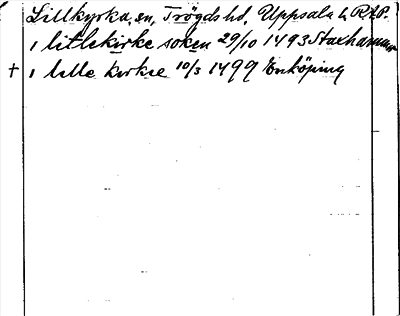 Lillkyrka, sn, Trögds hd, Uppsala l. RAP.
i litlekirke soken 29/10 1493 Staxhammar
† i lille kirkie 10/3 1499 Enköping